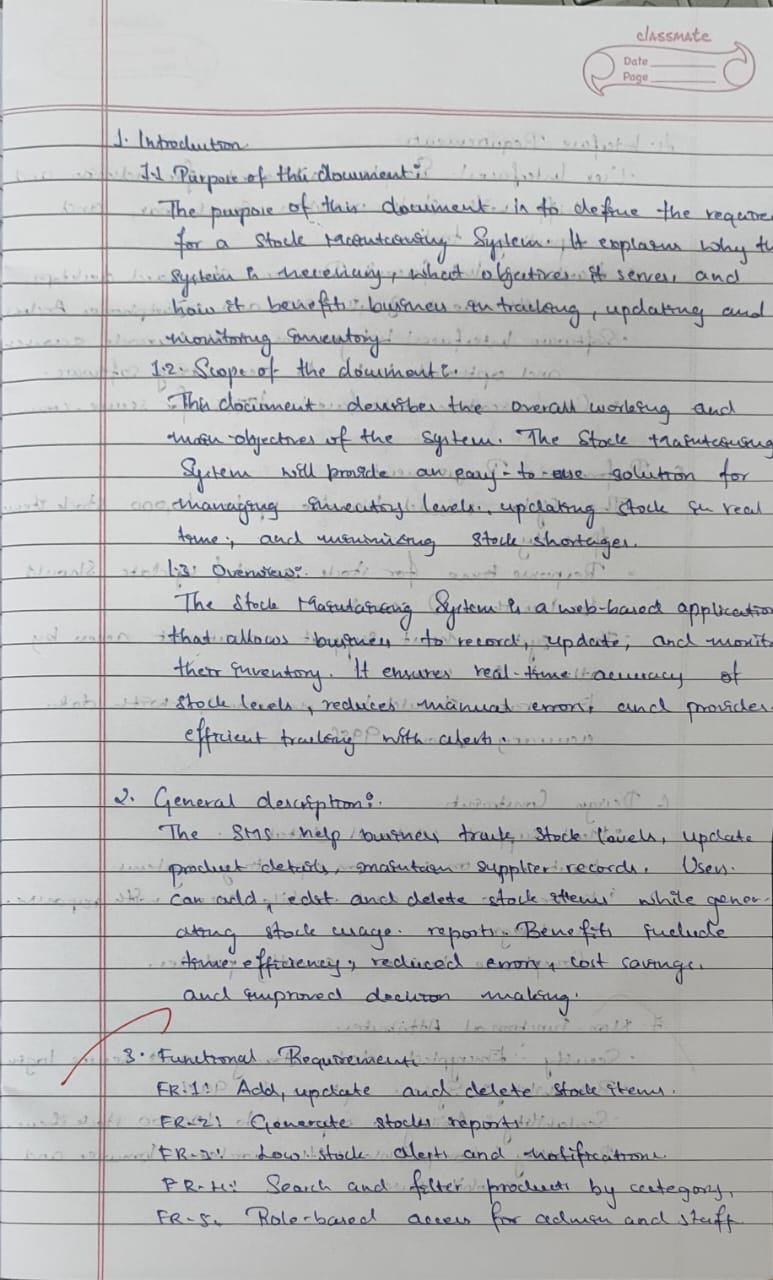 classmate
Date
Page
1. Introduction
1.1 Purpose of this document:
The purpose of this document is to define the require
for a Stock System. It explains why th
system is necessary, what objectives it serves, and
how it benefits business in tracking, updating and
monitoring inventory
1.2. Scope of the document:.
This document describes the overall working and
main objectives of the system. The Stock
System will provide an easy-to-use solution for
managing inventory levels, updating stock in real
time, and minimizing stock shortages.
1.3: Overview:.
The Stock System is a web-based application
that allows business to record, update, and monit
their inventory. It ensures real-time accuracy of
stock levels, reduces manual errors, and provides
efficient tracking with alerts.
2. General description:.
The SMS help business track stock levels, update
product details, maintain supplier records. Users
can add, edit and delete stock items while gener-
ating stock usage reports. Benefits include
time efficiency, reduced errors, cost savings,
and improved decision making.
3. Functional Requirements
FR-1: Add, update and delete stock items.
FR-2: Generate stocks reports
FR-3: Low stock alerts and notifications.
FR-4: Search and filter products by category,
FR-5. Role-based access for admin and staff